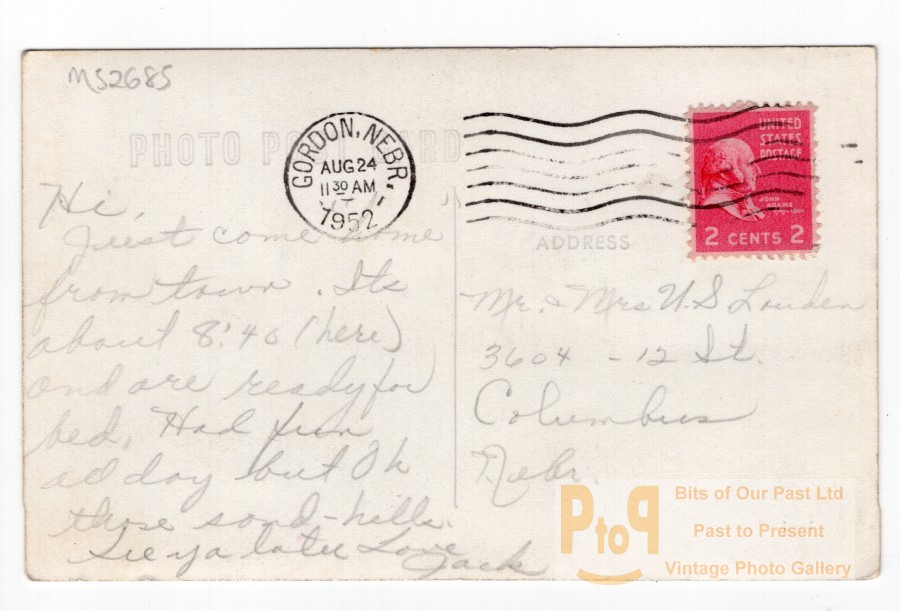 MS2685
PHOTO POST CARD
GORDON, NEBR.
AUG 24
11 30 AM
1952
UNITED
STATES
POSTAGE
JOHN
ADAMS
2 CENTS 2
Hi,
Just come home
from town. Its
about 8:40 (here)
and are ready for
bed. Had fun
all day but Oh
those sand-hills.
See ya later Love
Jack
ADDRESS
Mr. & Mrs U.S Louden
3604 - 12 St.
Columbus
Nebr.
PtoP
Bits of Our Past Ltd
Past to Present
Vintage Photo Gallery